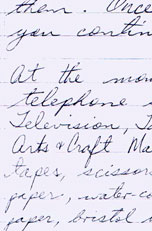 then. Once
you contin
At the mom
telephone
Television, Ta
Arts & Craft Ma
tapes, scissor
paper, water-co
paper, bristol